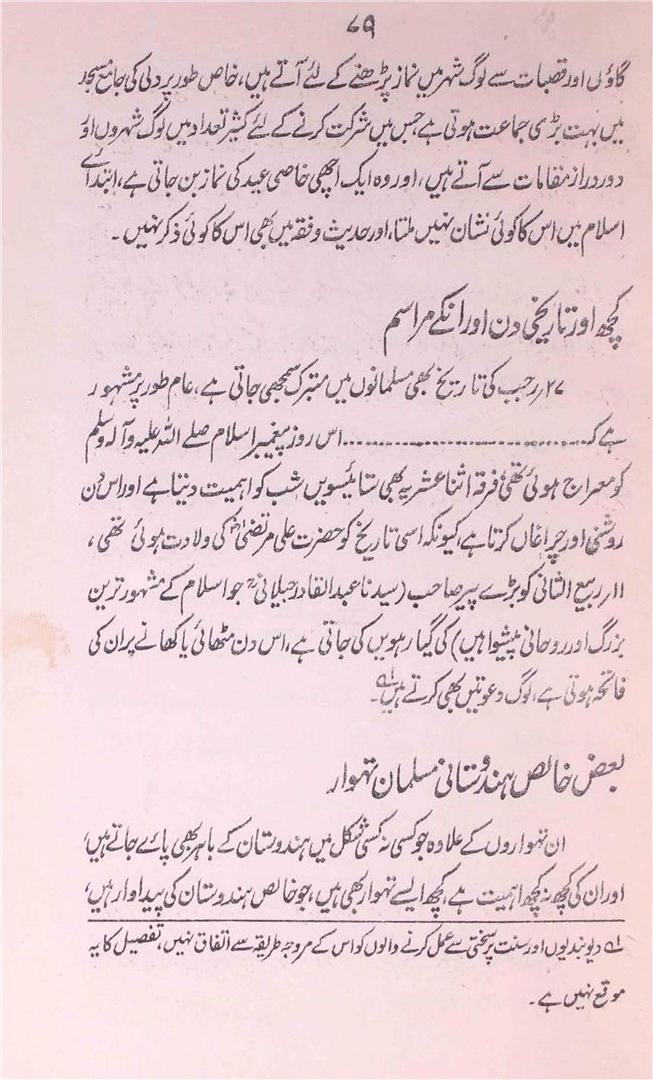 ۷۹
گاؤں اور قصبات سے لوگ شہر میں نماز پڑھنے کے لئے آتے ہیں، خاص طور پر دہلی کی جامع مسجد
میں بہت بڑی جماعت ہوتی ہے جس میں شرکت کرنے کے لئے کثیر تعداد میں لوگ شہروں اور
دور دراز مقامات سے آتے ہیں، اور وہ ایک اچھی خاصی عید کی نماز بن جاتی ہے، ابتدائے
اسلام میں اس کا کوئی نشان نہیں ملتا، اور حدیث و فقہ میں بھی اس کا کوئی ذکر نہیں۔
کچھ اور تاریخی دن اور انکے مراسم
۲۷؍رجب کی تاریخ بھی مسلمانوں میں متبرک سمجھی جاتی ہے، عام طور پر مشہور
ہے کہ ................................ اس روز پیغمبر اسلام صلے اللہ علیہ وآلہ وسلم
کو معراج ہوئی تھی، فرقہ اثنا عشریہ بھی ستائیسویں شب کو اہمیت دیتا ہے اور اس دن
روشنی اور چراغاں کرتا ہے، کیونکہ اسی تاریخ کو حضرت علی مرتضیٰؓ کی ولادت ہوئی تھی،
۱۱؍ربیع الثانی کو بڑے پیر صاحب (سیدنا عبدالقادر جیلانیؒ جو اسلام کے مشہور ترین
بزرگ اور روحانی پیشوا ہیں) کی گیارہویں کی جاتی ہے، اس دن مٹھائی یا کھانے پر ان کی
فاتحہ ہوتی ہے، لوگ دعوتیں بھی کرتے ہیں۔ لہ
بعض خالص ہندوستانی مسلمان تہوار
ان تہواروں کے علاوہ جو کسی نہ کسی شکل میں ہندوستان کے باہر بھی پائے جاتے ہیں،
اور ان کی کچھ نہ کچھ اہمیت ہے، کچھ ایسے تہوار بھی ہیں، جو خالص ہندوستان کی پیداوار ہیں،
لہ دیوبندیوں اور سنت پر سختی سے عمل کرنے والوں کو اس کے مروجہ طریقہ سے اتفاق نہیں، تفصیل کا یہ
موقع نہیں ہے۔